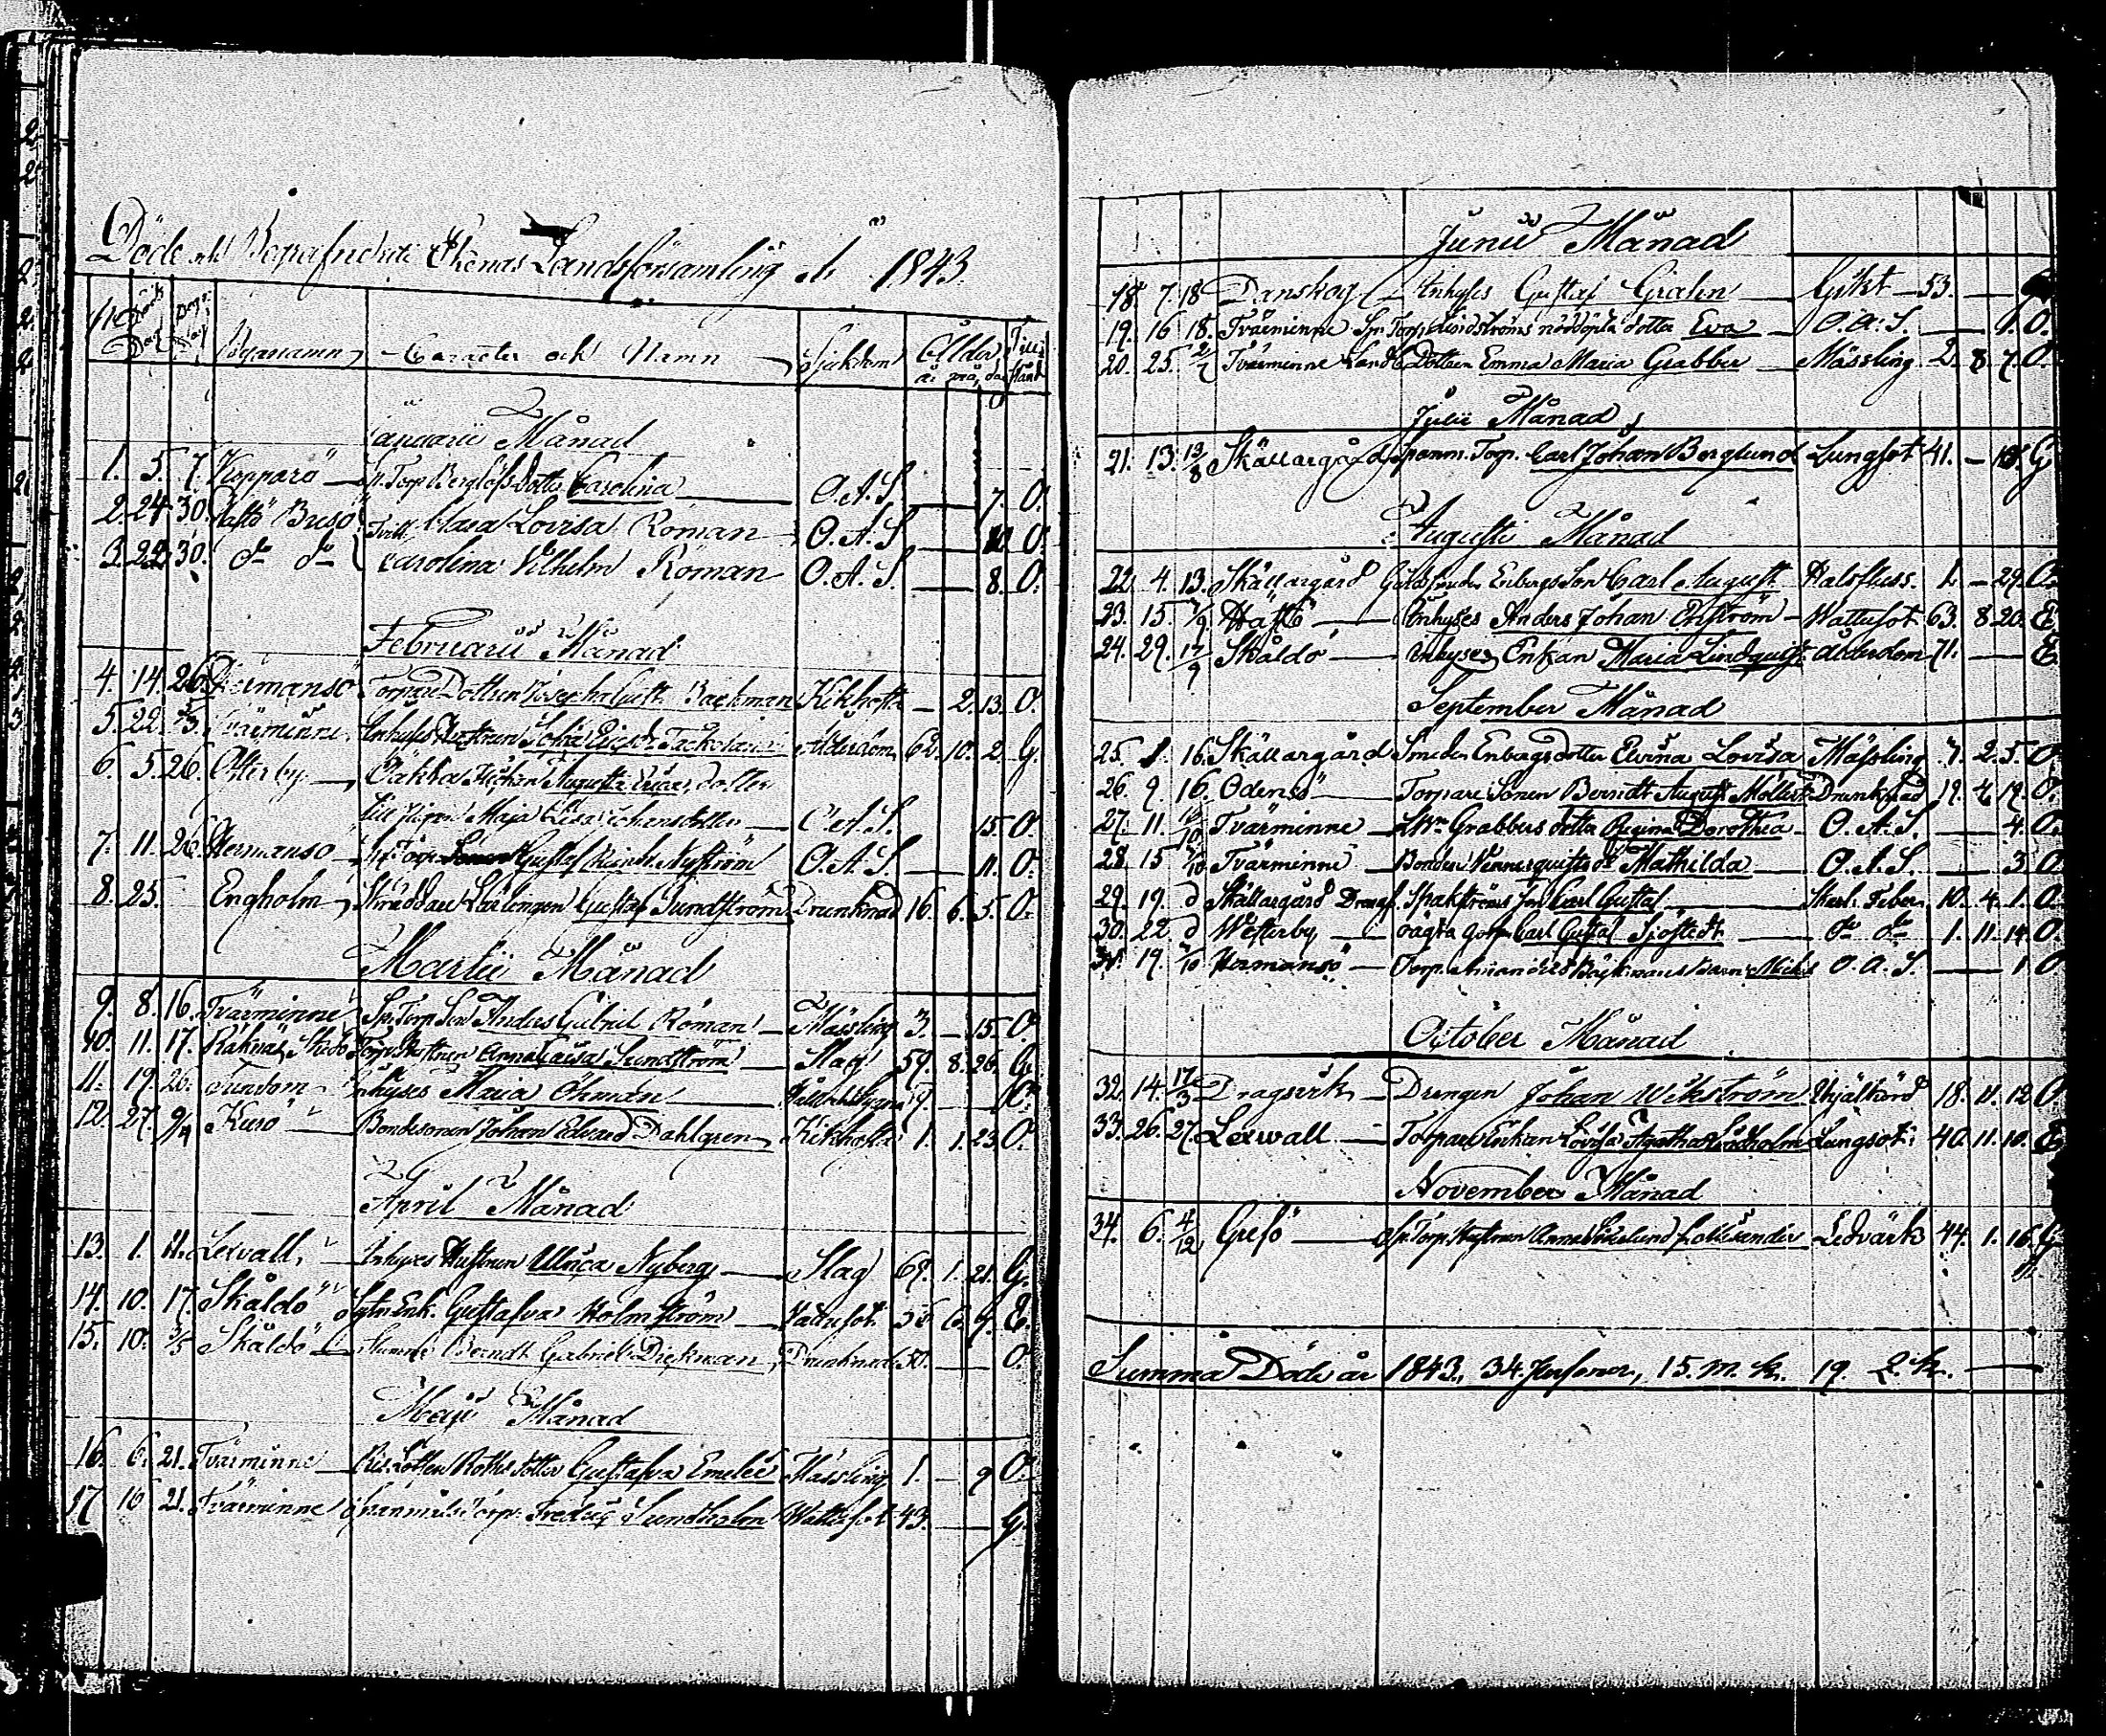 Döde och Begrafne uti Ekenäs Landsförsamling år 1843.
No Döds Dag Begr: Dag Byanamn Caracter och Namn Sjukdom Ålder år må, dag Till: stånd
Januarii Månad
1. 5. 7. Kopparö Sp. Torp. Berglöfs Dotter Carolina O.A.S. — 7. O.
2. 24. 30. Busö Tvill. Clara Lovisa Roman O.A.S. — 10 O.
3. 22. 30. do do Carolina Vilhelm Roman O.A.S. — 8. O.
Februarii Månad
4. 14. 26. Hermansö Torpare Dottren Josepha Gust. Backman Kikhosta — 2. 13. O.
5. 22. Tvärminne Inhyses Hustrun Sofia Ålderdom 62. 10. 2. G.
6. 5. 26. Österby Oäkta Augusta dotter
Maja Lisa Johansdotter O.A.S. 15. O.
7. 11. 26. Hermansö Gustaf Nyström O.A.S. — 11. O.
8. 25. Engholm Skräddare Lärlingen Gustaf Sundström Drunknad 16. 6. 5. O.
Martii Månad
9. 8. 16. Tvärminne Sp. Torp. Son Anders Gabriel Roman Mässling 3. — 15. O.
10. 11. 17. Hustrun Anna Caisa Sundström Slag 59. 8. 26. G.
11. 19. 26. Inhyses Maria Öhman
12. 27. 9/4 Kusö Bondesonen Johan Edvard Dahlgren Kikhosta 1. 1. 23. O.
April Månad
13. 1. 11. Lexvall Inhyses Hustrun Ulrica Nyberg Slag 69. 1. 21. G.
14. 10. 17. Skåldö Enk. Gustafva Holmström Vattusot E.
15. 10. 3/5 Skåldö Berndt Gabriel Dickman Drunknad 50. — O.
Maji Månad
16. 6. 21. Tvärminne dotter Gustafva Emelie Mässling 1. — 9 O.
17 16 21. Tvärminne Torp. Fredric Sundholm Wattusot 43. — G.
Junii Månad
18. 7. 18 Danskog Inhyses Gustaf Grahn Gikt 53. —
19. 16 18. Tvärminne Sp. Torp. Lindströms nöddöpta dotter Eva O.A.S. — 1. O.
20. 25. 2/7 Tvärminne Landb. Dottren Emma Maria Grabber Mässling 2. 8. 7. O.
Julii Månad
21. 13. 13/8 Skällargård Spanm. Torp. Carl Johan Berglund Lungsot 41. — G
Augusti Månad
22. 4. 13. Skällargård Enbergs Son Carl August Halsfluss. 1. — 29. O.
23. 15. Inhyses Anders Johan Wattusot 63. 8 20. E
24. 29. 17/9 Skåldö Inhyses Enkan Maria Lindquist ålderdom 71. — E
September Månad
25. 1. 16. Skällargård Smeden Enbergs dotter Elvina Lovisa Mässling 7. 2. 5. O.
26. 9. 16. Odensö Torpare Sonen Berndt August Drunknad 19. 4. 19. O.
27. 11. Tvärminne Grabbers dotter Regina Dorothea O.A.S. — 4. O.
28. 15 Tvärminne Bonden Wennerquists dr Mathilda O.A.S. — 3 O
29. 19. d Skällargård Spakströms son Carl Gustaf Skarl. Feber 10. 4. 1. O.
30. 22. d Westerby oägta goss. Carl Gustaf Sjöstedt do do 1. 11. 14. O.
31. 19. Hermansö Torp. Backmans Barn O.A.S. — 1 O
October Månad
32. 14. Dragsvik Drengen Johan Wikström Ihjälkörd 18. 11. 12 O
33. 26. 27. Lexwall Torpare Enkan Lovisa Agatha Lindholm Lungsot 40. 11. 10. E
November Månad
34. 6. 4/12 Gresö Sp. Torp. Hustrun Ledvärk 44. 1. 16. G
Summa Döde år 1843., 34. Personer, 15. m. k. 19. Q. k. —